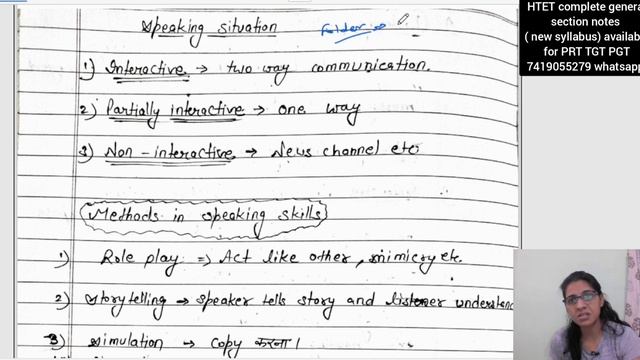 Speaking situation
Folder →
HTET complete genera
section notes
( new syllabus) availab
for PRT TGT PGT
7419055279 whatsapp
1) Interactive → two way communication.
2) Partially interactive → one way
3) Non-interactive → News channel etc
Methods in speaking skills
1) Role play ⇒ Act like other, mimicry etc.
2) Storytelling → speaker tells story and listener understand
3) Simulation → copy करना।